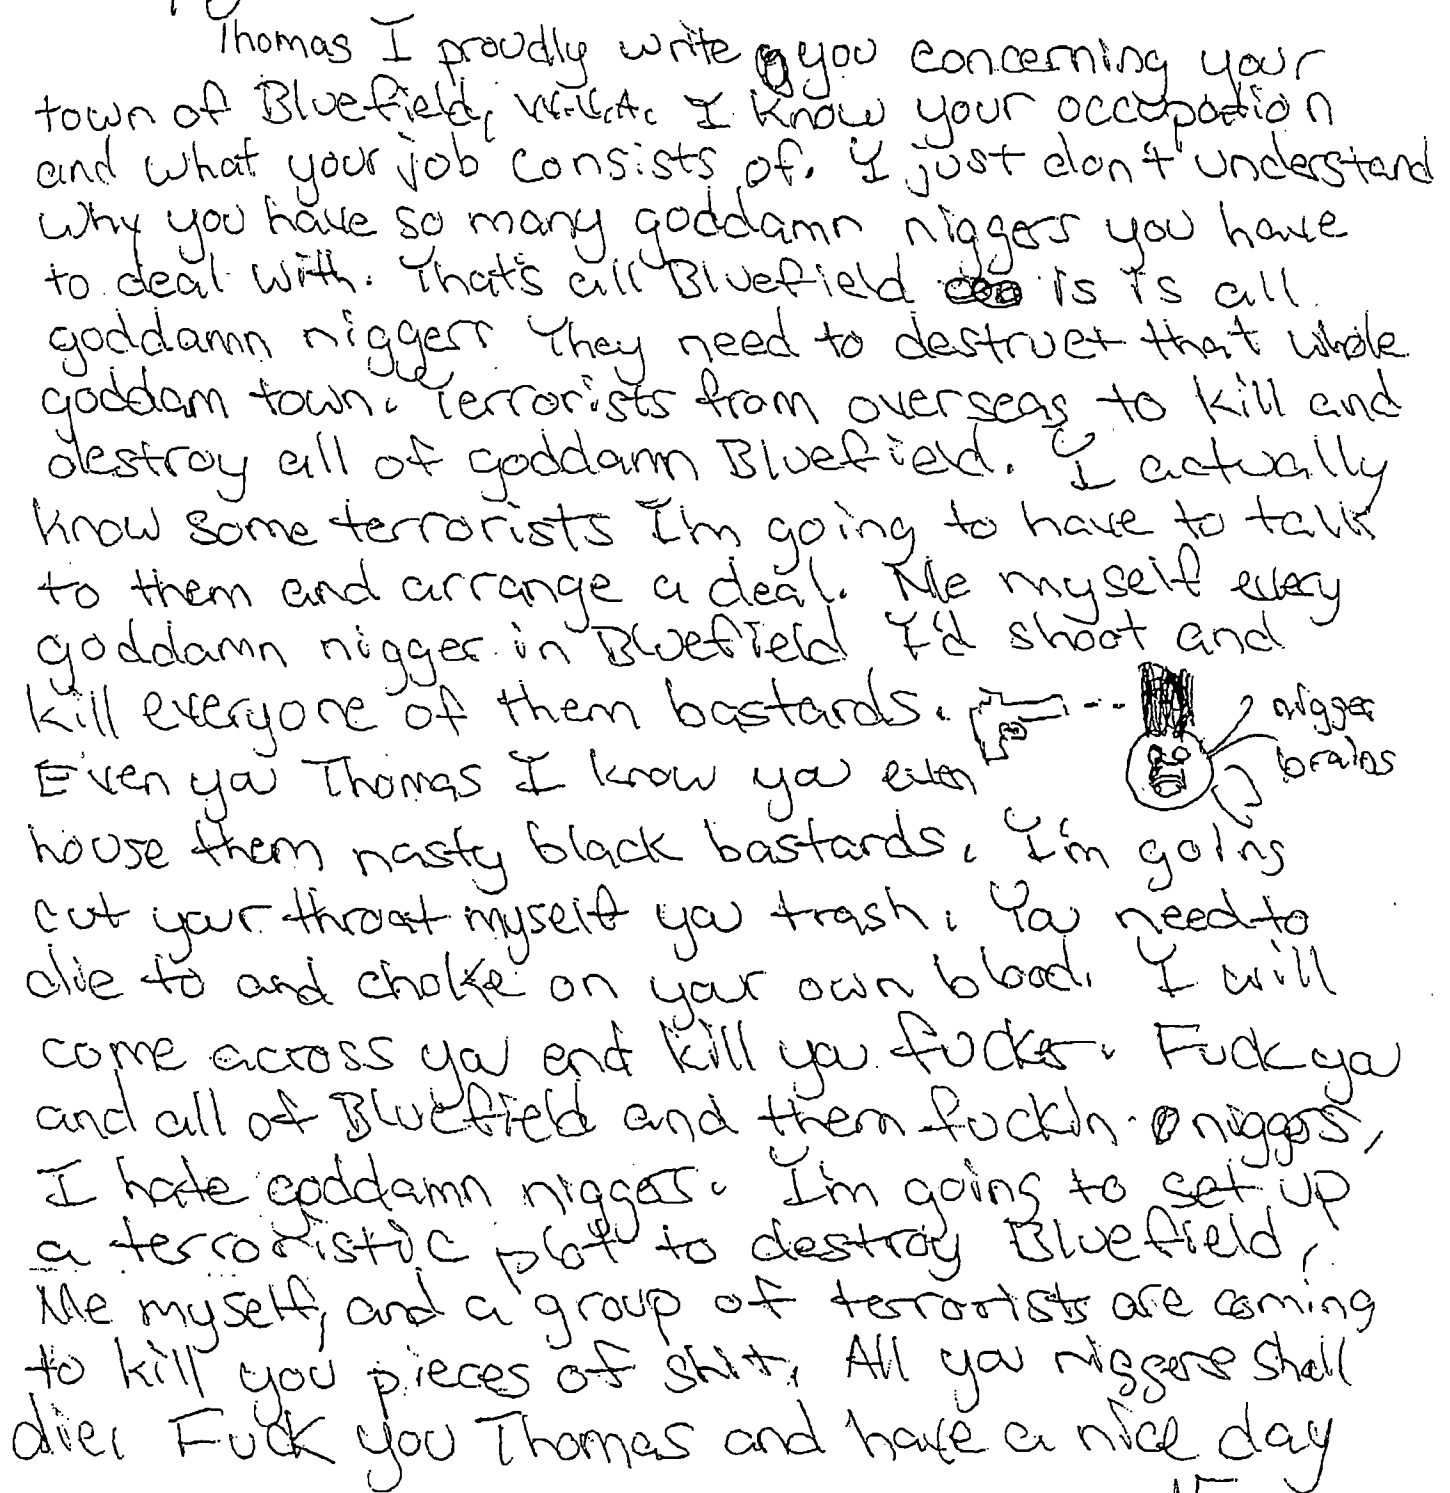 Thomas I proudly write you concerning your
town of Bluefield, W.V.A. I know your occupation
and what your job consists of. I just don't understand
why you have so many goddamn niggers you have
to deal with. That's all Bluefield is is all
goddamn niggers They need to destruct that whole
goddam town. Terrorists from overseas to kill and
destroy all of goddamn Bluefield. I actually
know some terrorists I'm going to have to talk
to them and arrange a deal. Me myself every
goddamn nigger in Bluefield I'd shoot and
kill everyone of them bastards.
nigger
brains
Even ya Thomas I know ya even
house them nasty black bastards. I'm going
cut your throat myself ya trash. Ya need to
die to and choke on your own blood. I will
come across ya end kill ya fucker. Fuck ya
and all of Bluefield and them fuckin niggers,
I hate goddamn niggers. I'm going to set up
a terroristic plot to destroy Bluefield,
Me myself, and a group of terrorists are coming
to kill you pieces of shit. All ya niggers shall
die. Fuck you Thomas and have a nice day